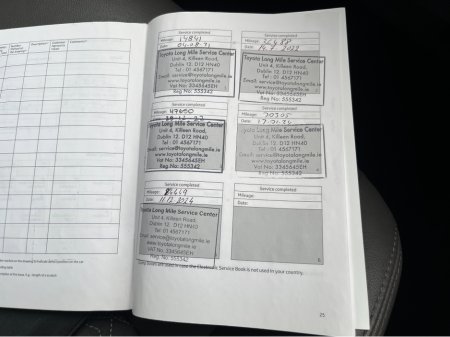 Description
Service completed
Mileage: 14841
Date: 04.08.21
Toyota Long Mile Service Center
Unit 4, Killeen Road,
Dublin 12. D12 HN40
Tel : 01 4567171
Email: service@toyotalongmile.ie
www.toyotalongmile.ie
Vat No: 3345645EH
Reg No: 555342
Service completed
Mileage:
Date:
Toyota Long Mile Service Center
Unit 4, Killeen Road,
Dublin 12. D12 HN40
Tel : 01 4567171
Email: service@toyotalongmile.ie
www.toyotalongmile.ie
Vat No: 3345645EH
Reg No: 555342
Service completed
Mileage: 47650
Toyota Long Mile Service Center
Unit 4, Killeen Road,
Dublin 12. D12 HN40
Tel : 01 4567171
Email: service@toyotalongmile.ie
www.toyotalongmile.ie
Vat No: 3345645EH
Reg No: 555342
Service completed
Mileage:
Date:
Toyota Long Mile Service Center
Unit 4, Killeen Road,
Dublin 12. D12 HN40
Tel : 01 4567171
Email: service@toyotalongmile.ie
www.toyotalongmile.ie
Vat No: 3345645EH
Reg No: 555342
Service completed
Mileage:
Date: 11.12.2024
Toyota Long Mile Service Center
Unit 4, Killeen Road,
Dublin 12. D12 HN40
Tel 01 4567171
Email: service@toyotalongmile.ie
www.toyotalongmile.ie
VAT No: 3345645EH
Reg No: 555342
Service completed
Mileage:
Date:
Service Book is not used in your country.
25